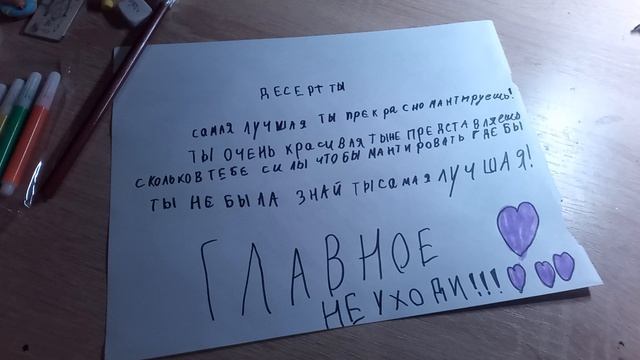 ДЕСЕРТ ТЫ
самая лучшая ты прекрасно мантируешь!
ты очень красивая ты не представляешь
сколько в тебе силы чтобы мантировать где бы
ты не была знай ты самая лучшая!
ГЛАВНОЕ
НЕ УХОДИ!!!